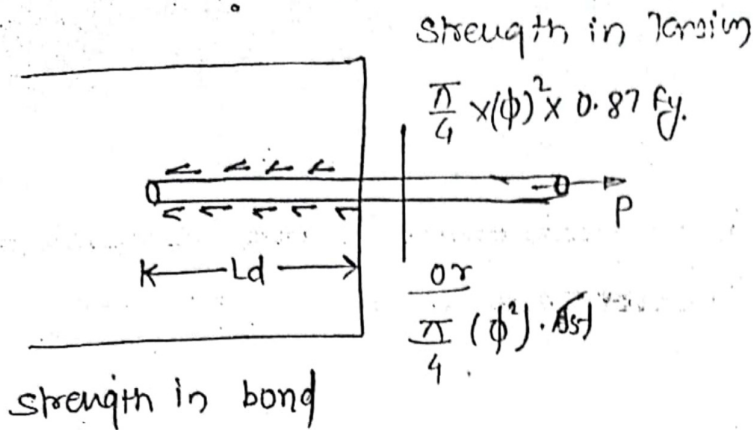 Strength in Tension
π/4 ×(ϕ)² × 0.87 fy.
P
Ld
or
π/4 (ϕ²).
strength in bond